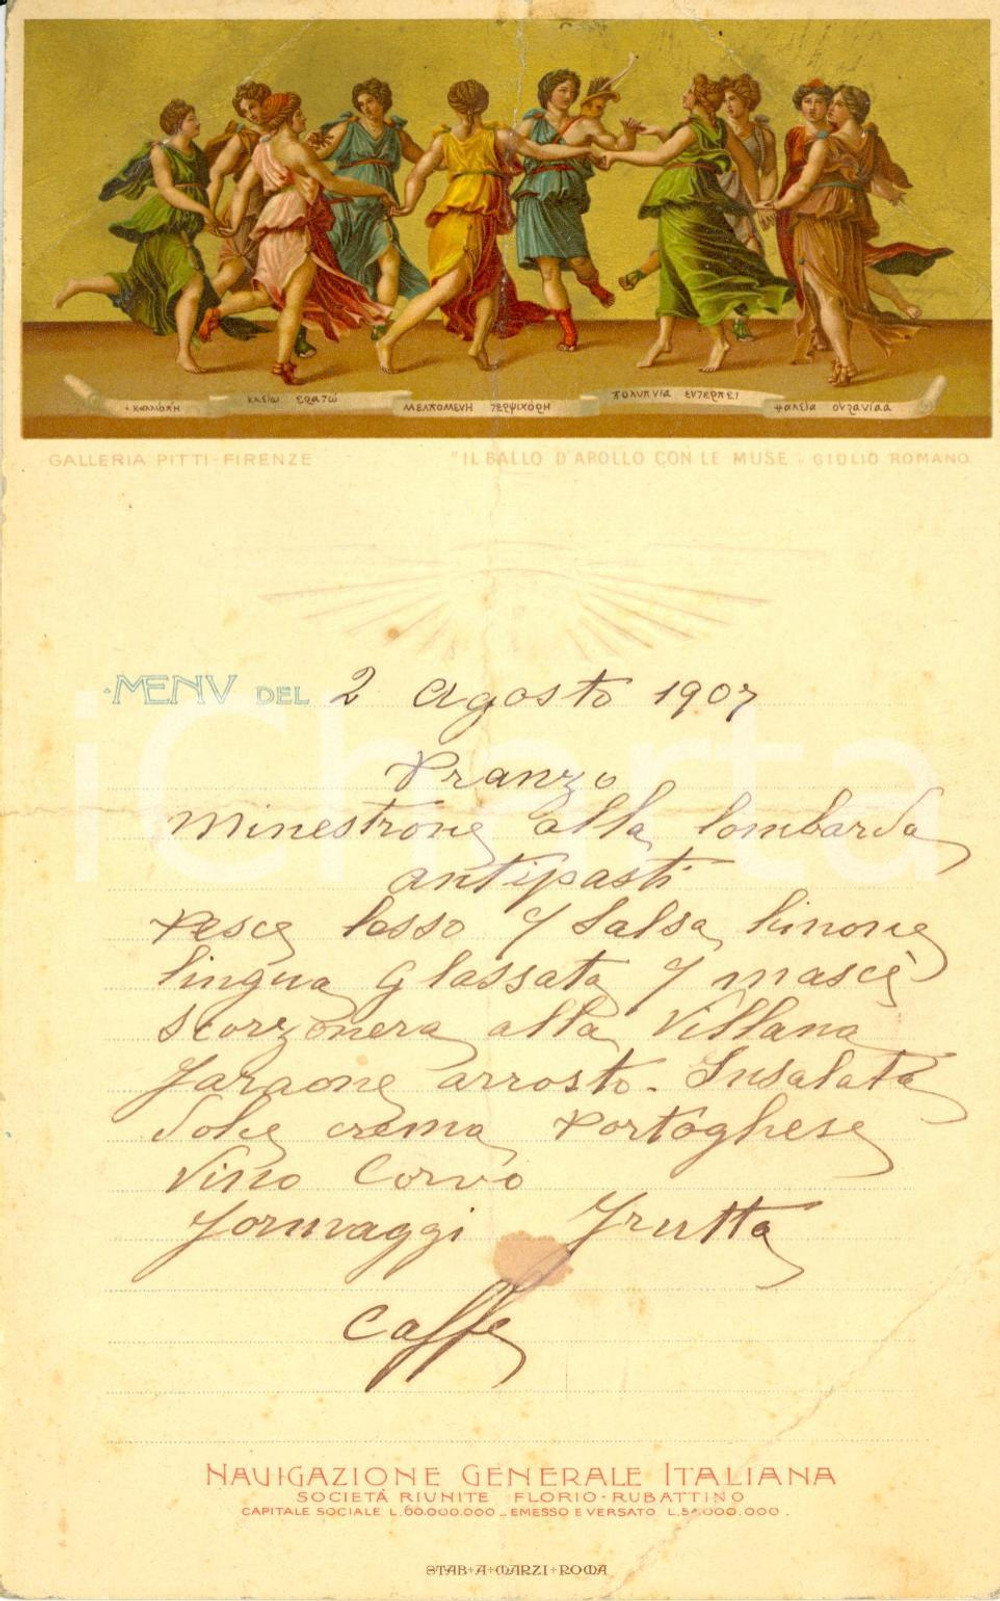 ΚΑΛΛΙΟΠΗ ΚΛΕΙΩ ΕΡΑΤΩ ΜΕΛΠΟΜΕΝΗ ΤΕΡΨΙΧΟΡΗ ΠΟΛΥΜΝΙΑ ΕΥΤΕΡΠΕΙ ΘΑΛΕΙΑ ΟΥΡΑΝΙΑ
GALLERIA PITTI-FIRENZE "IL BALLO D'APOLLO CON LE MUSE - GIULIO ROMANO
MENV DEL 2 Agosto 1907
Pranzo
Minestrone alla lombarda
antipasti
Pesce lesso / Salsa limone
lingua Glassata /
Scorzonera alla Villana
Faraone arrosto - Insalata
Dolce crema Portoghese
Vino Corvo
Formaggi Frutta
Caffe
NAVIGAZIONE GENERALE ITALIANA
SOCIETÀ RIUNITE FLORIO-RUBATTINO
CAPITALE SOCIALE L.60.000.000 - EMESSO E VERSATO L.54.000.000.
STAB+A+MARZI+ROMA
iCharta